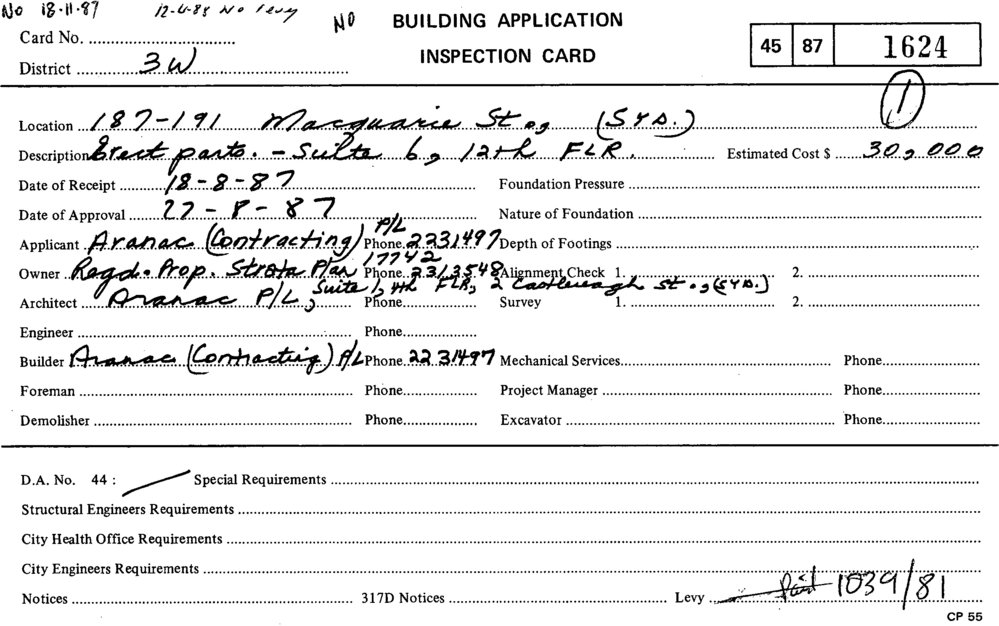 No 18·11·87 12-4-88 No levy NO BUILDING APPLICATION
Card No. 45 87 1624
INSPECTION CARD
District 3W
1
Location 187-191 Macquarie St., (SYD.)
Description Erect parts. - Suite 6, 12th FLR. Estimated Cost $ 30,000
Date of Receipt 18-8-87 Foundation Pressure
Date of Approval 27-8-87 Nature of Foundation
Applicant Aranac (Contracting) P/L Phone 2231497 Depth of Footings
Owner Regd. Prop. Strata Plan 17742 Phone 2313548 Alignment Check 1. 2.
Architect Aranac P/L, Suite 1, 4th FLR, 2 Castlereagh St., (SYD.) Phone Survey 1. 2.
Engineer Phone
Builder Aranac (Contracting) P/L Phone 2231497 Mechanical Services Phone
Foreman Phone Project Manager Phone
Demolisher Phone Excavator Phone
D.A. No. 44 : Special Requirements
Structural Engineers Requirements
City Health Office Requirements
City Engineers Requirements
Notices 317D Notices Levy 1039/81
CP 55